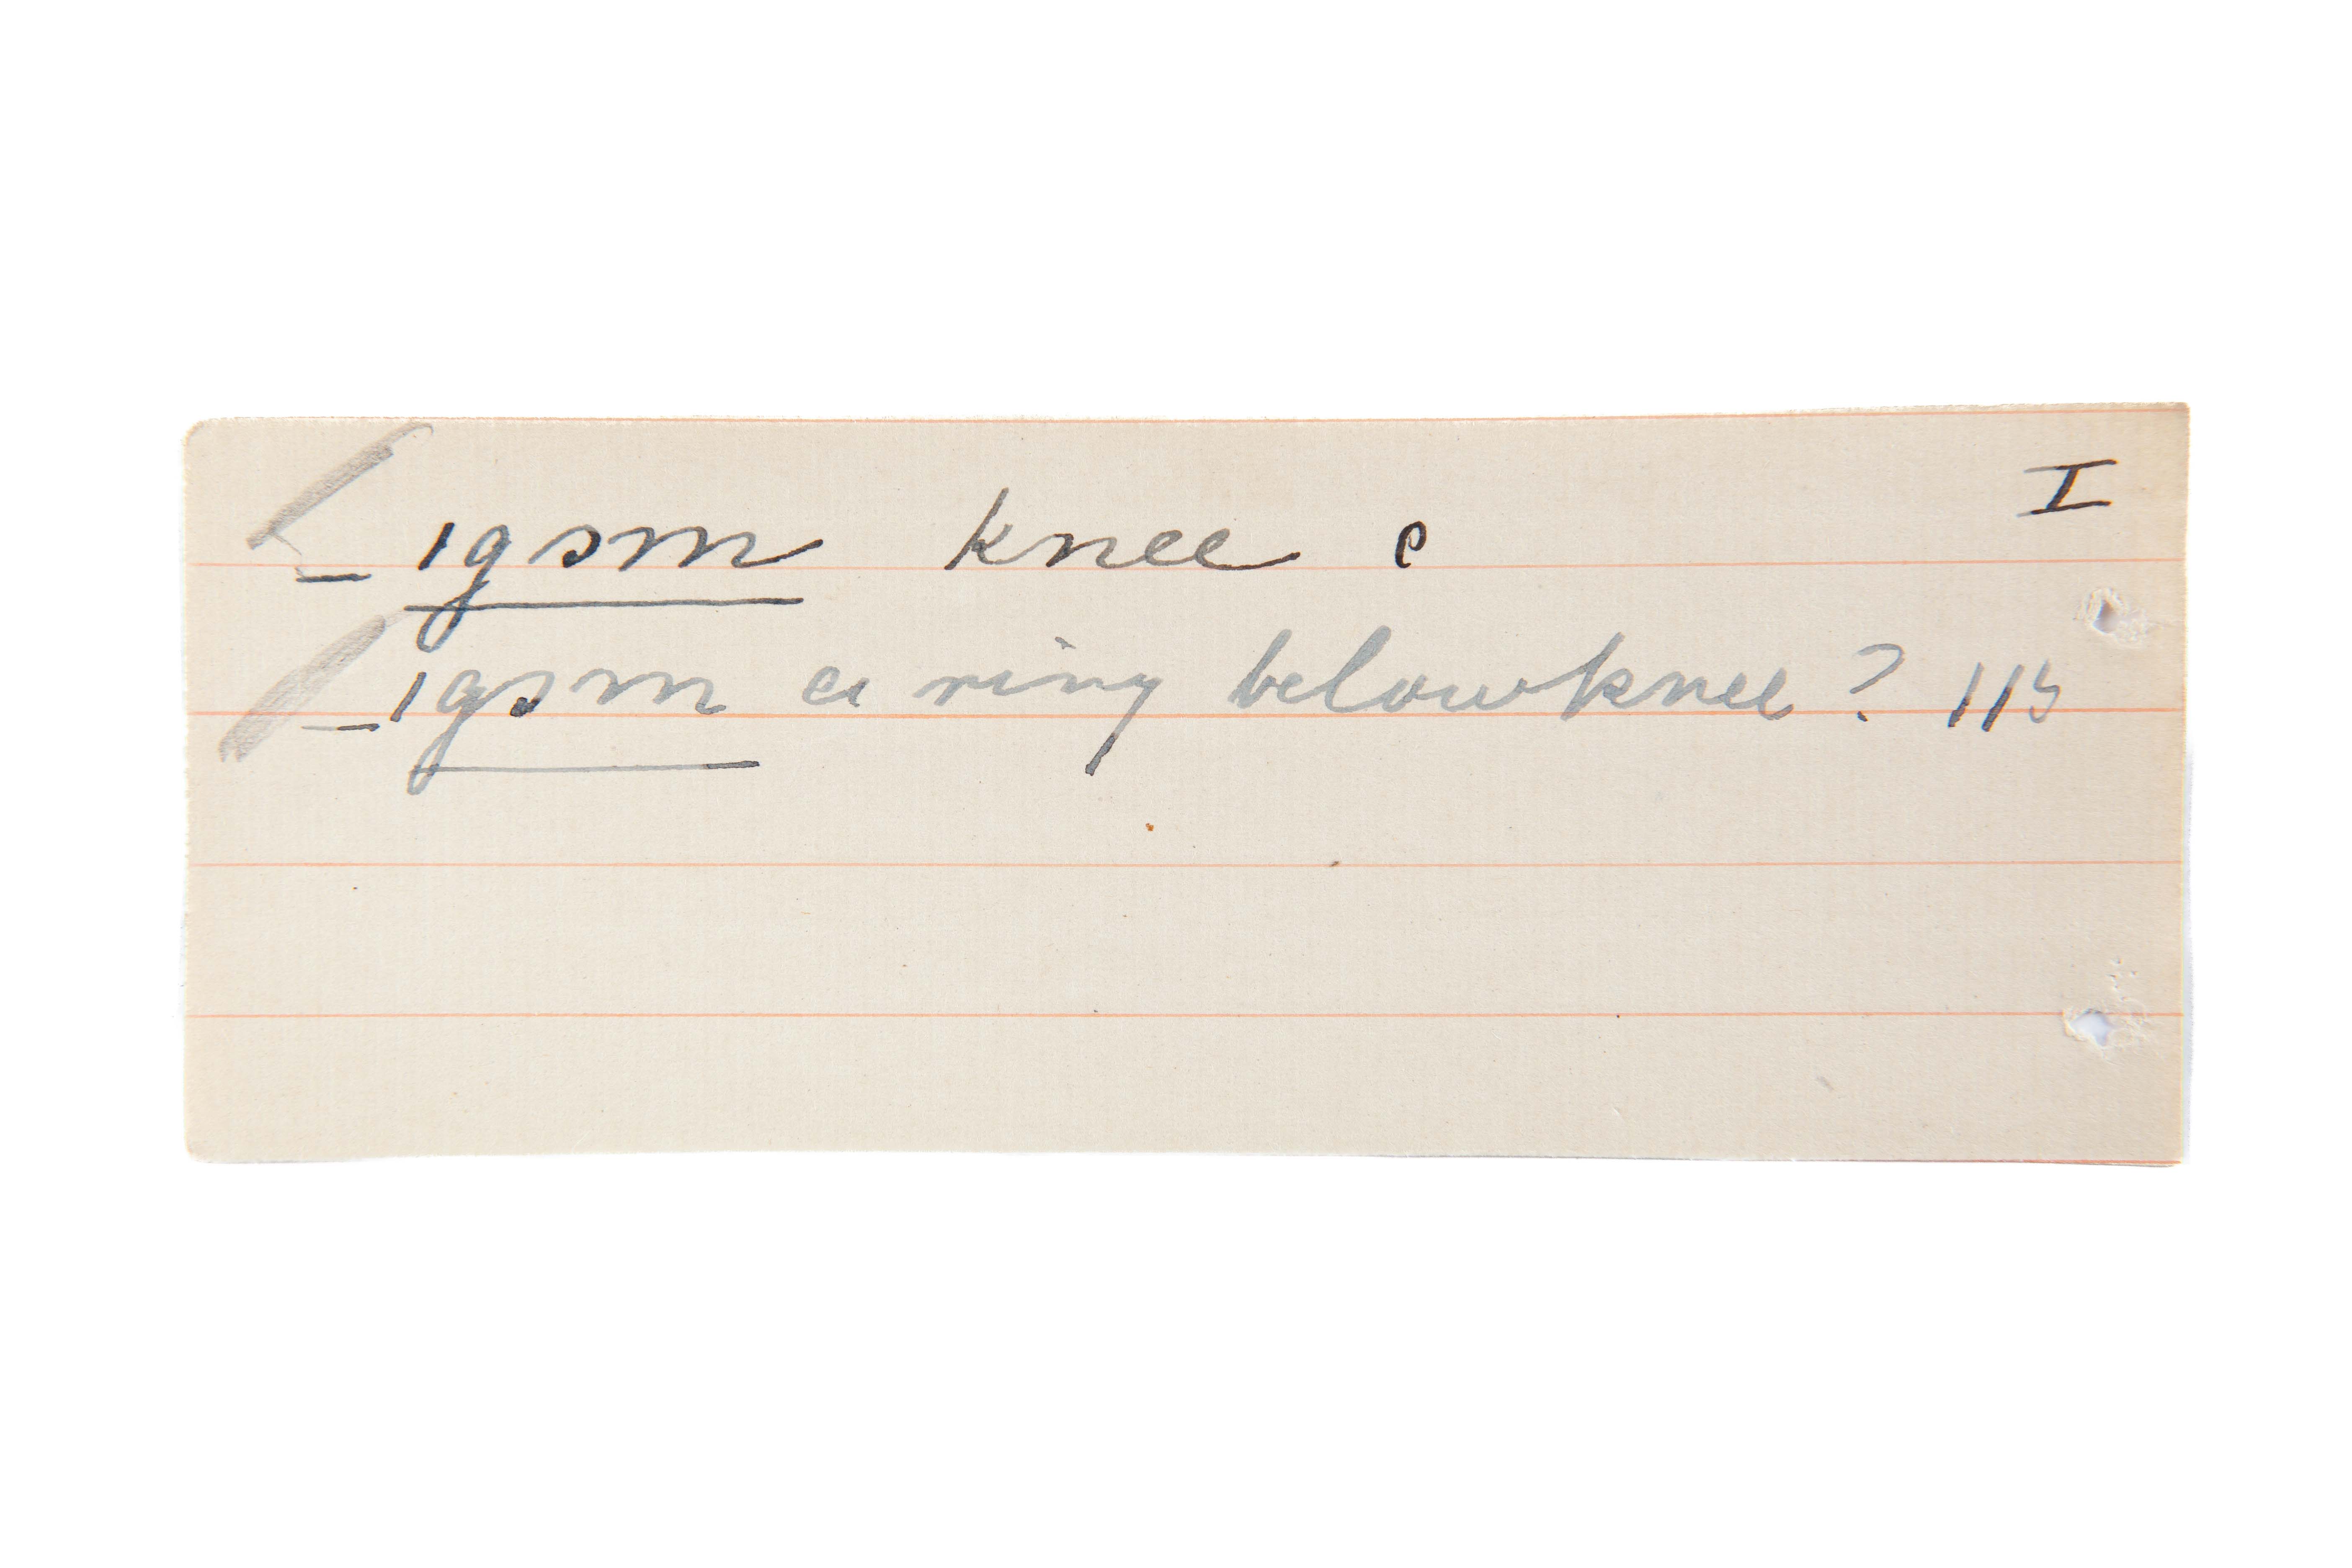 I
– ıgsm knee c
– ıgsm a ring below knee ? 115